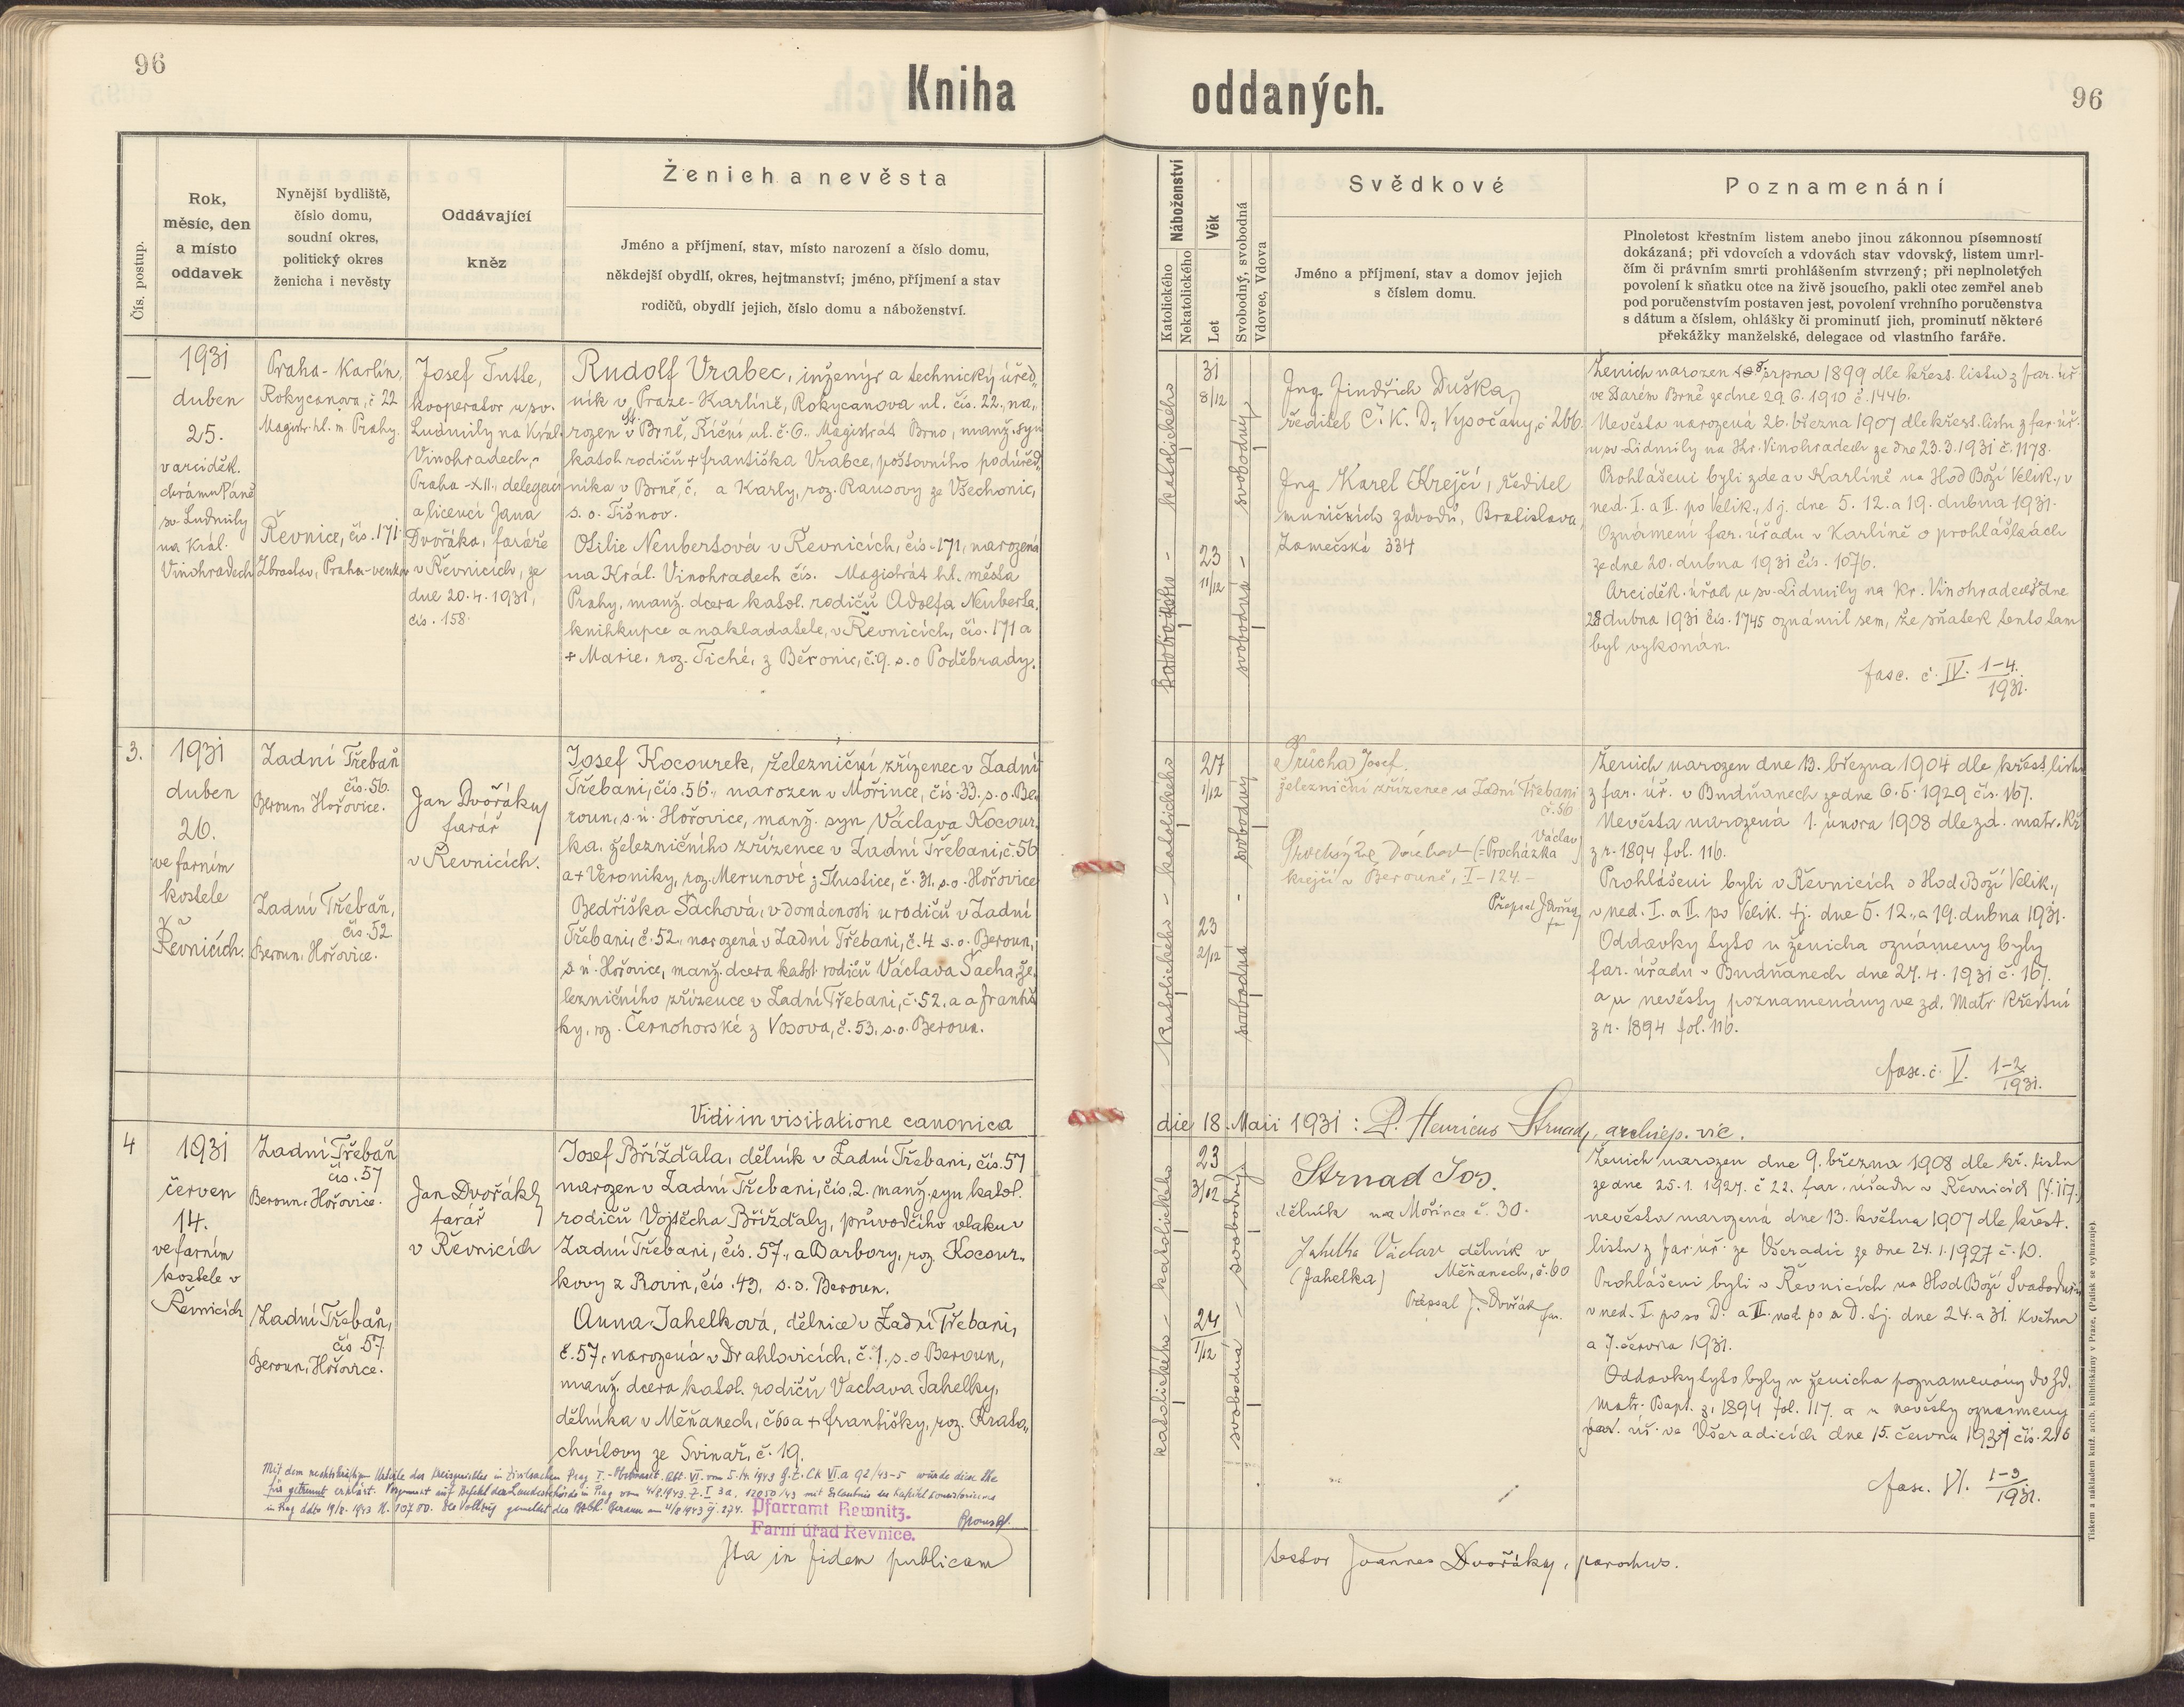 96
Kniha
oddaných.
96
Čís. postup.
Rok,
měsíc, den
a místo
oddavek
Nynější bydliště,
číslo domu,
soudní okres,
politický okres
ženicha i nevěsty
Oddávající
kněz
Ženich a nevěsta
Jméno a příjmení, stav, místo narození a číslo domu,
někdejší obydlí, okres, hejtmanství; jméno, příjmení a stav
rodičů, obydlí jejich, číslo domu a náboženství.
Náboženství
Katolického
Nekatolického
Věk
Let
Svobodný, svobodná
Vdovec, Vdova
Svědkové
Jméno a příjmení, stav a domov jejich
s číslem domu.
Poznamenání
Plnoletost křestním listem anebo jinou zákonnou písemností
dokázaná; při vdovcích a vdovách stav vdovský, listem umrl-
čím či právním smrti prohlášením stvrzený; při neplnoletých
povolení k sňatku otce na živě jsoucího, pakli otec zemřel aneb
pod poručenstvím postaven jest, povolení vrchního poručenstva
s dátum a číslem, ohlášky či prominutí jich, prominutí některé
překážky manželské, delegace od vlastního faráře.
1931
duben
25.
v arciděk.
chrámu Páně
sv. Ludmily
na Král.
Vinohradech
Praha-Karlín,
Rokycanova, č 22
Magistr. hl. m. Prahy.
Řevnice, čís. 171.
Zbraslav, Praha-venkov
Josef Tuttе,
kooperator u sv.
Ludmily na Král.
Vinohradech,-
Praha-XII., delegací
a licencí Jana
Dvořáka, faráře
v Řevnicích, ze
dne 20.4.1931,
čís. 158.
Rudolf Vrabec, inženýr a technický úřed„
ník v Praze-Karlíně, Rokycanova ul. čís. 22., na„
rozen v Brně, Říční ul. č. 6., Magistrát Brno, manž. syn
katol. rodičů + Františka Vrabce, poštovního podúřed„
níka v Brně, č. a Karly, roz. Rausovy ze Všechovic,
s. o. Tišnov.
Otilie Neubertová v Řevnicích, čís. 171, narozená
na Král. Vinohradech čís. Magistrát hl. města
Prahy, manž. dcera katol. rodičů Adolfa Neuberta,
knihkupce a nakladatele, v Řevnicích, čís. 171 a
+ Marie, roz. Tiché, z Běronic, č. 9. s. o Poděbrady.
katolického
katolického -
31
8/12
23
11/12
svobodný
svobodná -
Ing. Jindřich Duška,
ředitel Č. K. D., Vysočany, č 266.
Ing. Karel Krejčí, ředitel
muničních závodů, Bratislava,
Zámečská 334
Ženich narozen 8. srpna 1899 dle křest. listu z far. úř.
ve Starém Brně ze dne 29.6.1910 č. 1446.
Nevěsta narozená 26. března 1907 dle křest. listu z far. úř.
u sv. Lidmily na Kr. Vinohradech ze dne 23.3.1931 č. 1178.
Prohlášeni byli zde a v Karlíně na Hod Boží Velik., v
ned. I. a II. po Velik., tj. dne 5. 12. a 19. dubna 1931.
Oznámení far. úřadu v Karlíně o prohláškách
ze dne 20. dubna 1931 čís. 1076.
Arciděk. úřad u sv. Lidmily na Kr. Vinohradech dne
28 dubna 1931 čís. 1745 oznámil sem, že sňatek tento tam
byl vykonán.
fasc. č. IV. 1-4.
1931.
3.
1931
duben
26.
ve farním
kostele
v
Řevnicích.
Zadní Třebaň
čís. 56.
Beroun, Hořovice.
Zadní Třebaň,
čís. 52.
Beroun, Hořovice.
Jan Dvořáky
farář
v Řevnicích.
Josef Kocourek, železniční zřízenec v Zadní
Třebani, čís. 56., narozen v Mořince, čís. 33. s. o. Be„
roun, s. ú. Hořovice, manž. syn Václava Kocour„
ka, železničního zřízence v Zadní Třebani, č. 56
a + Veroniky, roz. Merunové z Tlustice, č. 31. s. o. Hořovice
Bedřiška Šachová, v domácnosti u rodičů v Zadní
Třebani, č. 52., narozená v Zadní Třebani, č. 4 s. o. Beroun,
s ú. Hořovice, manž. dcera katol. rodičů Václava Šacha, že„
lezničního zřízence v Zadní Třebani, č. 52. a a Františ
ky, roz. Černohorské z Vosova, č. 53. s. o. Beroun.
katolického - katolického
27
1/12
23
2/12
svobodný
svobodná
Průcha Josef.
železniční zřízenec v Zadní Třebani
č. 56
(=Procházka Václav)
krejčí v Berouně, I-124.-
Přepsal J. Dvořáky
far.
Ženich narozen dne 13. března 1904 dle křest. listu
z far. úř. v Budňanech ze dne 6.5.1929 čís. 167.
Nevěsta narozená 1. února 1908 dle zd. matr. Kř.
z r. 1894 fol. 116.
Prohlášeni byli v Řevnicích o Hod Boží Velik.,
v ned. I. a II. po Velik. tj. dne 5. 12., a 19. dubna 1931.
Oddavky tyto u ženicha oznámeny byly
far. úřadu v Budňanech dne 27.4.1931 č. 167.
a u nevěsty poznamenány ve zd. Matr. Křestní
z r. 1894 fol. 116.
fasc. č. V. 1-2
1931.
Vidi in visitatione canonica
die 18. Maii 1931: P. Henricus Strnad, archiep. vic.
4
1931
červen
14.
ve farním
kostele v
Řevnicích
Zadní Třebaň
čís. 57
Beroun, Hořovice.
Zadní Třebaň,
čís 57.
Beroun, Hořovice.
Jan Dvořáky
farář
v Řevnicích
Josef Břížďala, dělník v Zadní Třebani, čís. 57
narozen v Zadní Třebani, čís. 2. manž. syn katol.
rodičů Vojtěcha Břížďaly, průvodčího vlaku v
Zadní Třebani, čís. 57., a Barbory, roz. Kocour„
kovy z Rovin, čís. 43, s. o. Beroun.
Anna Jahelková, dělnice v Zadní Třebani,
č. 57, narozená v Drahlovicích, č. 1. s. o Beroun,
manž. dcera katol. rodičů Václava Jahelky,
dělníka v Měňanech, č 60 a + Františky, roz. Krato„
chvílovy ze Svinař, č. 19.
katolického - katolického
23
3/12
24
1/12
svobodný
svobodná
Strnad Jos.
dělník na Mořince č. 30.
Jahelka Václav dělník v
(Jahelka) Měňanech, č. 60
Přepsal J. Dvořák far.
Ženich narozen dne 9. března 1908 dle kř. listu
ze dne 25.1.1927. č 22. far. úřadu v Řevnicích (f. 117.)
nevěsta narozená dne 13. května 1907 dle křest.
listu z far. úř. ze Všeradic ze dne 24.1.1927 č. 10.
Prohlášeni byli v Řevnicích na Hod Boží Svatodušní
v ned. I po sv D. a II. ned. po s D. tj. dne 24. a 31. Května
a 7. června 1931.
Oddavky tyto byly u ženicha poznamenány do zd.
Matr. Bapt. z, 1894 fol. 117. a u nevěsty oznámeny
far. úř. ve Všeradicích dne 15. června 1931 čís. 216
fasc. VI. 1-3
1931.
Mit dem rechtskräftigen Urteile des Kreisgerichtes in Zivilsachen Prag I.- Abt. VI. vom 5.IV.1943 G.Z. Ck VI.a 92/43-5 wurde diese Ehe
für getrennt erklärt. Vorgemerkt auf Befehl der Landesbehörde in Prag vom 4/8.1943. Z. I 3a. 12050/43 mit Erlaubnis des Kapitel Konsistoriums
in Prag ddto 19/8. 1943 N. 10700. Der Vollzug gemeldet
Pfarramt Rewnitz.
Farní úřad Řevnice.
Ita in fidem publicam
testor Joannes Dvořáky, parochus.
Tiskem a nákladem kníž. arcib. knihtiskárny v Praze. (Patisk se vyhrazuje).